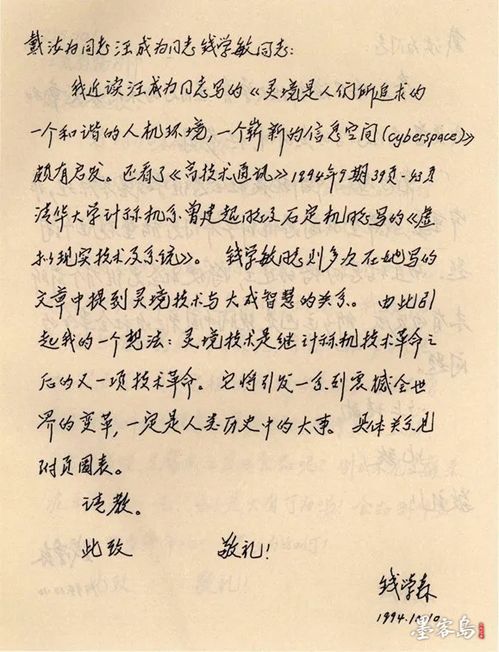 戴汝为同志汪成为同志钱学敏同志：
我近读汪成为同志写的《灵境是人们所追求的
一个和谐的人机环境，一个崭新的信息空间(cyberspace)》
颇有启发。还看了《高技术通讯》1994年9期39页-43页
清华大学计算机系曾建超同志及石定机同志写的《虚
拟现实技术及系统》。 钱学敏同志则多次在她写的
文章中提到灵境技术与大成智慧的关系。 由此引
起我的一个想法：灵境技术是继计算机技术革命之
后的又一项技术革命。它将引发一系列震撼全世
界的变革，一定是人类历史中的大事。具体关系见
附页图表。
请教。
此致 敬礼！
钱学森
1994.10.10
墨客岛